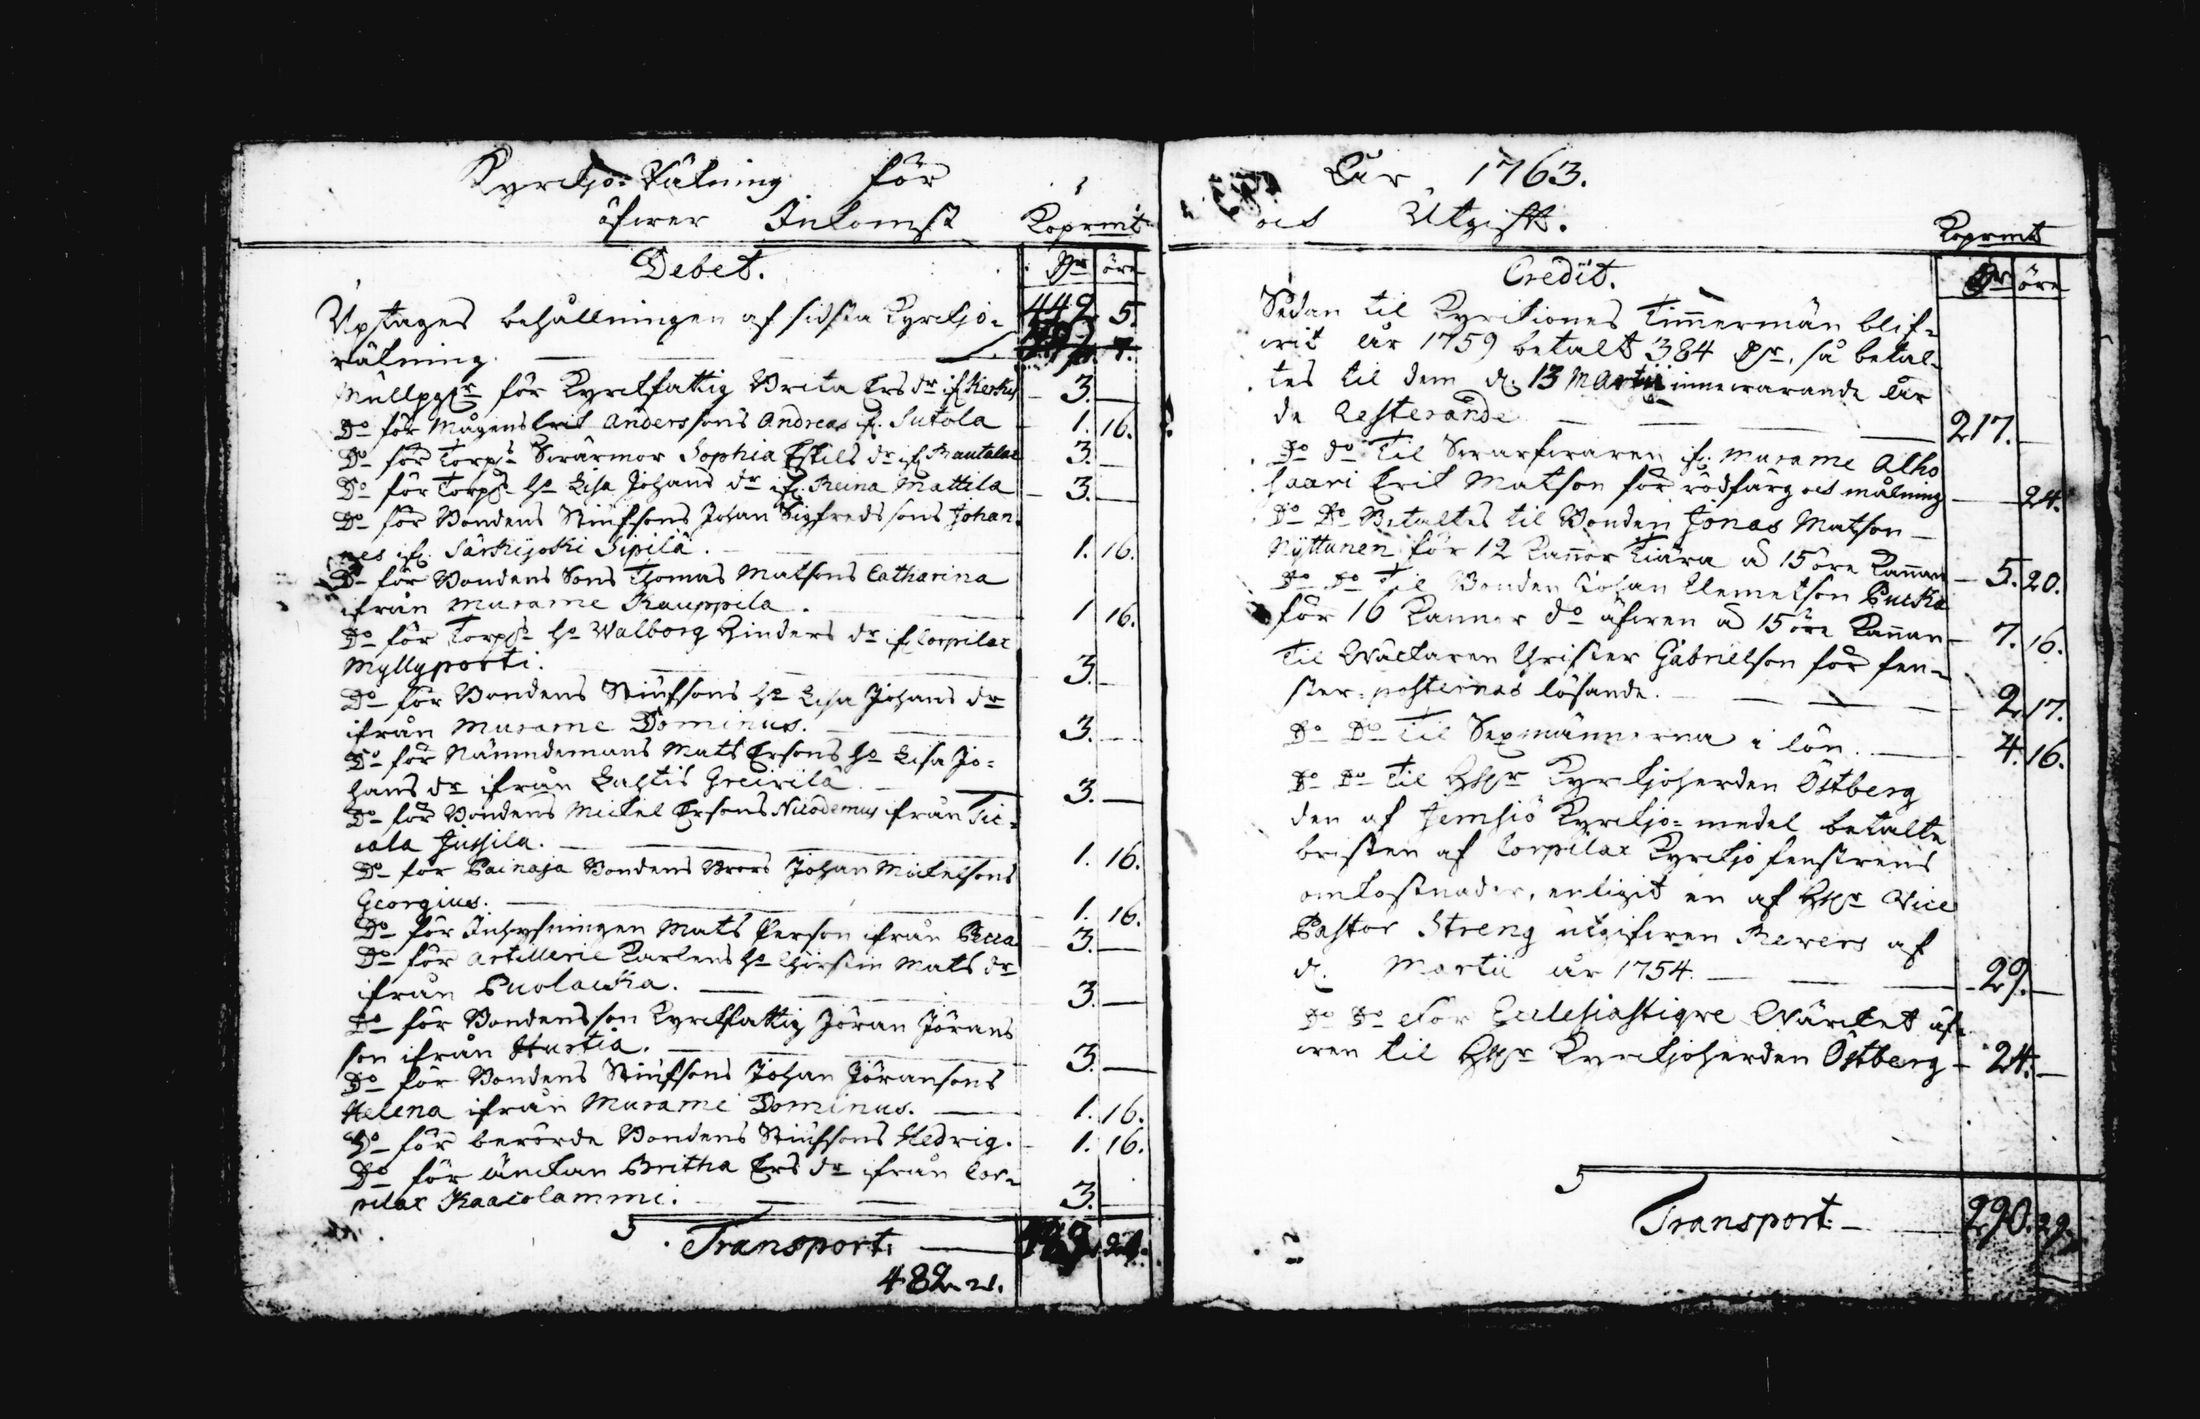 Kyrckjo-Räkning för
öfwer Inkomst Koprmt
Debet. Dr öre
Upstages behållningen af sidsta Kyrckjo= 449. 5.
räkning.
Mullpgr för Kyrckfattig Brita Ersdr if. Kerkis 3. —
Do för Mågens Erik Anderssons Andreas if. Sutola 1. 16.
Do för Torps Swärmor Sophia Eskils dr if Rautalax 3. —
Do för Torps ho Lisa Johans dr if. Reina Mattila 3. —
Do för Bondens Stiufsons Johan Sigfredssons Johan=
nes if. Särkijoki Sipilä. 1. 16.
Do för Bondens Sons Thomas Matsons Catharina
ifrån Murame Kauppila. 1 16.
Do för Torps ho Walborg Hinders dr if Corpilax
Myllyporti. 3. —
Do för Bondens Stiufsons ho Lisa Johans dr
ifrån Murame Dominus. 3. —
Do för Nämndemans Mats Ersons ho Lisa Jo=
hans dr ifrån Lahtis Greivilä 3. —
Do för Bondens Mickel Ersons Nicodemus ifrån Tic=
cala Jussila. 1. 16.
Do för Painaja Bondens Brors Johan Mickelsons
Georgius. 1. 16.
Do för Inhysningen Mats Person ifrån Pecca 3. —
Do för Artillerie Karlens ho Chirstin Mats dr
ifrån Puolacka. 3. —
Do för Bondens son Kyrckfattig Jöran Jörans
son ifrån Hustia. 3. —
Do för Bondens Stiufsons Johan Jöransons
Helena ifrån Murame Dominus. 1. 16.
Do för berörde Bondens Stiufsons Hedvig. 1. 16.
Do för änckan Britha Ers dr ifrån Cor=
pilax Kaacolammi. 3.
Transport.
482. 21.
År 1763.
och Utgift.
Koprmt
Credit. Dr öre
Sedan til Kyrckiones Timmermän blif=
wit år 1759 betalt 384 Dr, så betal=
tes til dem d. 13 Martii innewarande år
de Resterande 217. —
Do do Til Swarfwaren if. Murame Alho
saari Erik Matson för rödfärg och målning — 24.
Do Do Betaltes til Bonden Jonas Matson
Nyttanen för 12 Kannor Tiära a 15 öre Kannan 5. 20.
Do Do Til Bonden Johan Clemetson Pucka
för 16 Kannor do äfwen a 15 öre Kannan 7. 16.
Til Wäcktaren Christer Gabrielson för fen=
ster-posternas lösande. 2. 17.
Do Do Til Sexmännerna i lön. 4. 16.
Do Do Til Hr Kyrckjoherden Östberg
den af Jemsiö Kyrckjo-medel betalte
bristen af Corpilax Kyrckjo fenstrens
omkostnader, enligit en af Hr Vice
Pastor Streng utgifwen Revers af
d. Martii år 1754. 29. —
Do Do För Ecclesiastique Wärcket äf=
wen til Hr Kyrckjoherden Östberg 24. —
Transport. 290. 29.